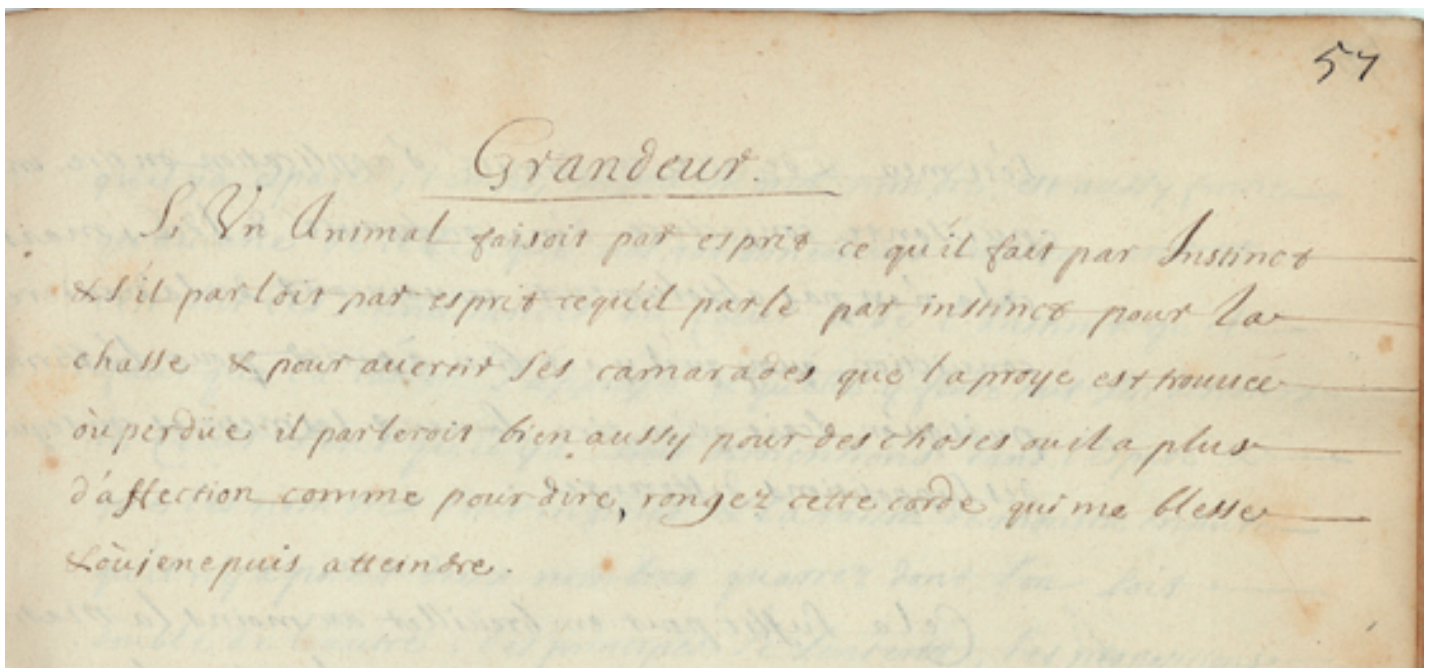 57
Grandeur.
Si Un Animal faisoit par esprit ce qu'il fait par Instinct
& s'il parloit par esprit ce qu'il parle par instinct pour La
chasse & pour auertir ses camarades que la proye est trouuée
où perdüe il parleroit bien aussy pour des choses ou il a plus
d'affection comme pour dire, rongez cette corde qui me blesse
& où je ne puis atteindre.